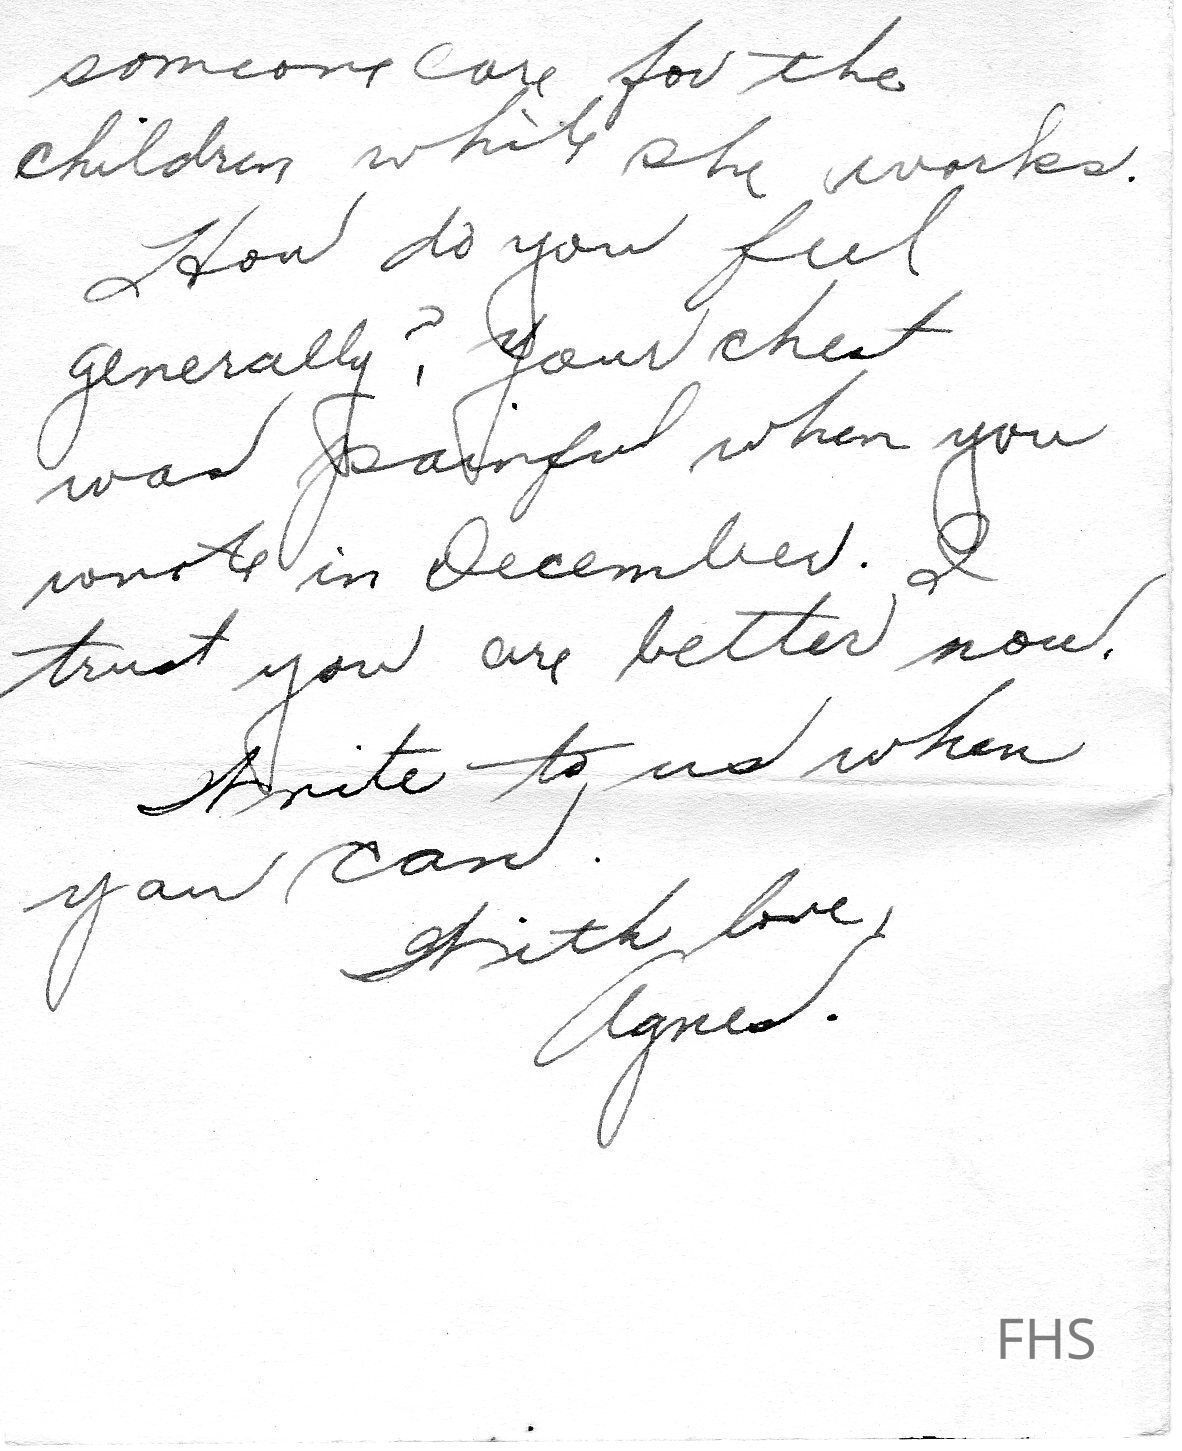 someone care for the
children while she works.
How do you feel
generally? Your chest
was painful when you
wrote in December. I
trust you are better now.
Write to us when
you can.
With love,
Agnes.
FHS